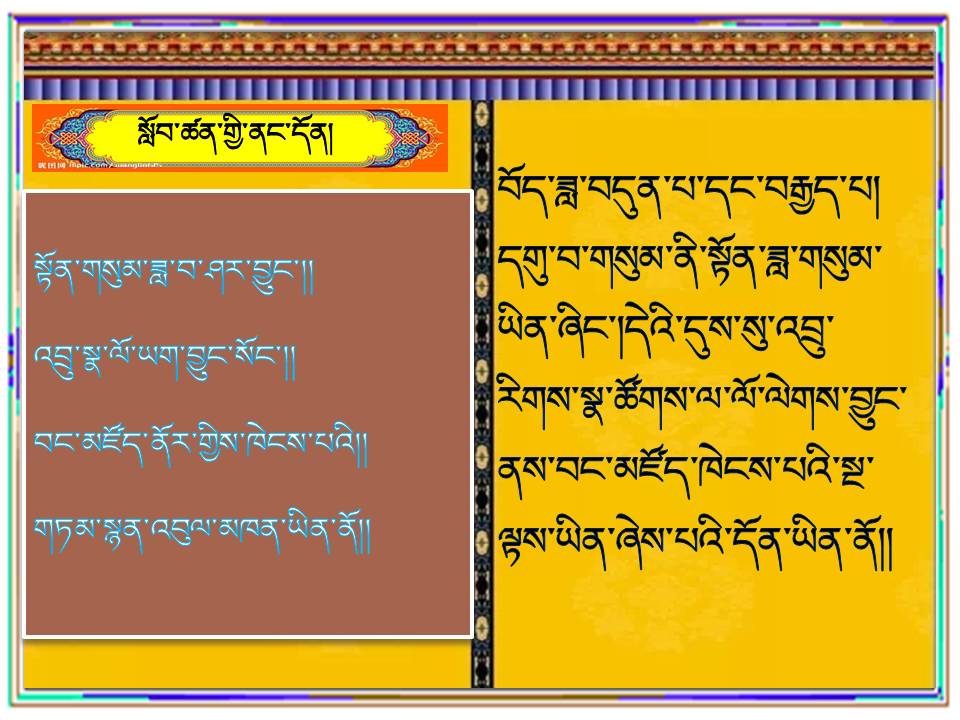 སློབ་ཚན་གྱི་ནང་དོན།
སྟོན་གསུམ་ཟླ་བ་ཤར་བྱུང་།།
འབྲུ་སྣ་ལོ་ཡག་བྱུང་སོང་།།
བང་མཛོད་ནོར་གྱིས་ཁེངས་པའི།།
གཏམ་སྙན་འབུལ་མཁན་ཡིན་ནོ།།
བོད་ཟླ་བདུན་པ་དང་བརྒྱད་པ།
དགུ་བ་གསུམ་ནི་སྟོན་ཟླ་གསུམ་
ཡིན་ཞིང་།དེའི་དུས་སུ་འབྲུ་
རིགས་སྣ་ཚོགས་ལ་ལོ་ལེགས་བྱུང་
ནས་བང་མཛོད་ཁེངས་པའི་སྔ་
ལྟས་ཡིན་ཞེས་པའི་དོན་ཡིན་ནོ།།